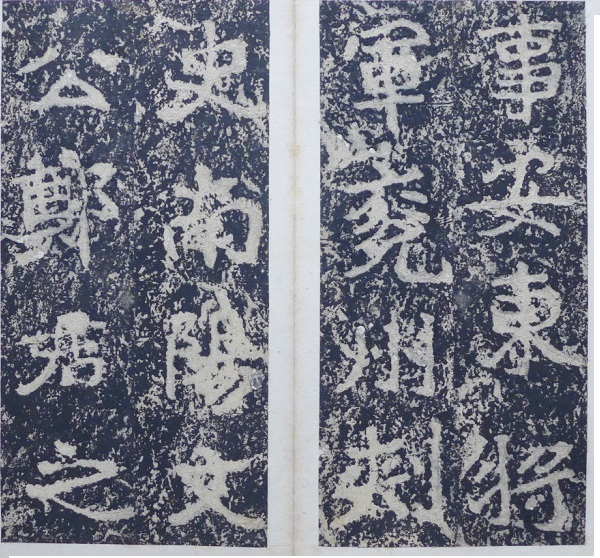 事安東將
軍兗州刺
史南陽文
公鄭君之